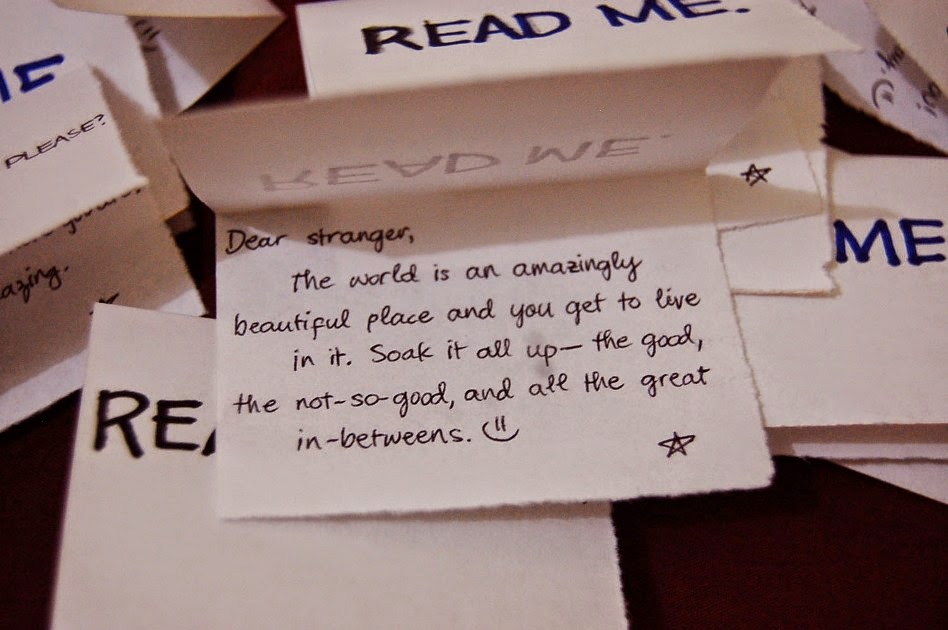 READ ME.
ME
PLEASE?
READ ME.
Dear stranger,
the world is an amazingly
beautiful place and you get to live
in it. Soak it all up— the good,
the not-so-good, and all the great
in-betweens.
ME